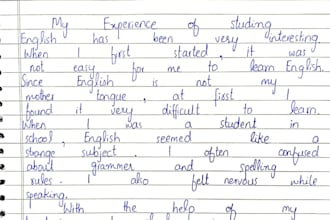 My Experience of studing
English has been very interesting.
When I first started, it was
not easy for me to learn English.
Since English is not my
mother tongue, at first I
found it very difficult to learn.
When I was a student in
school, English seemed like a
stange subject. I often confused
about grammer and spelling
rules. I also felt nervous while
speaking.
With the help of my